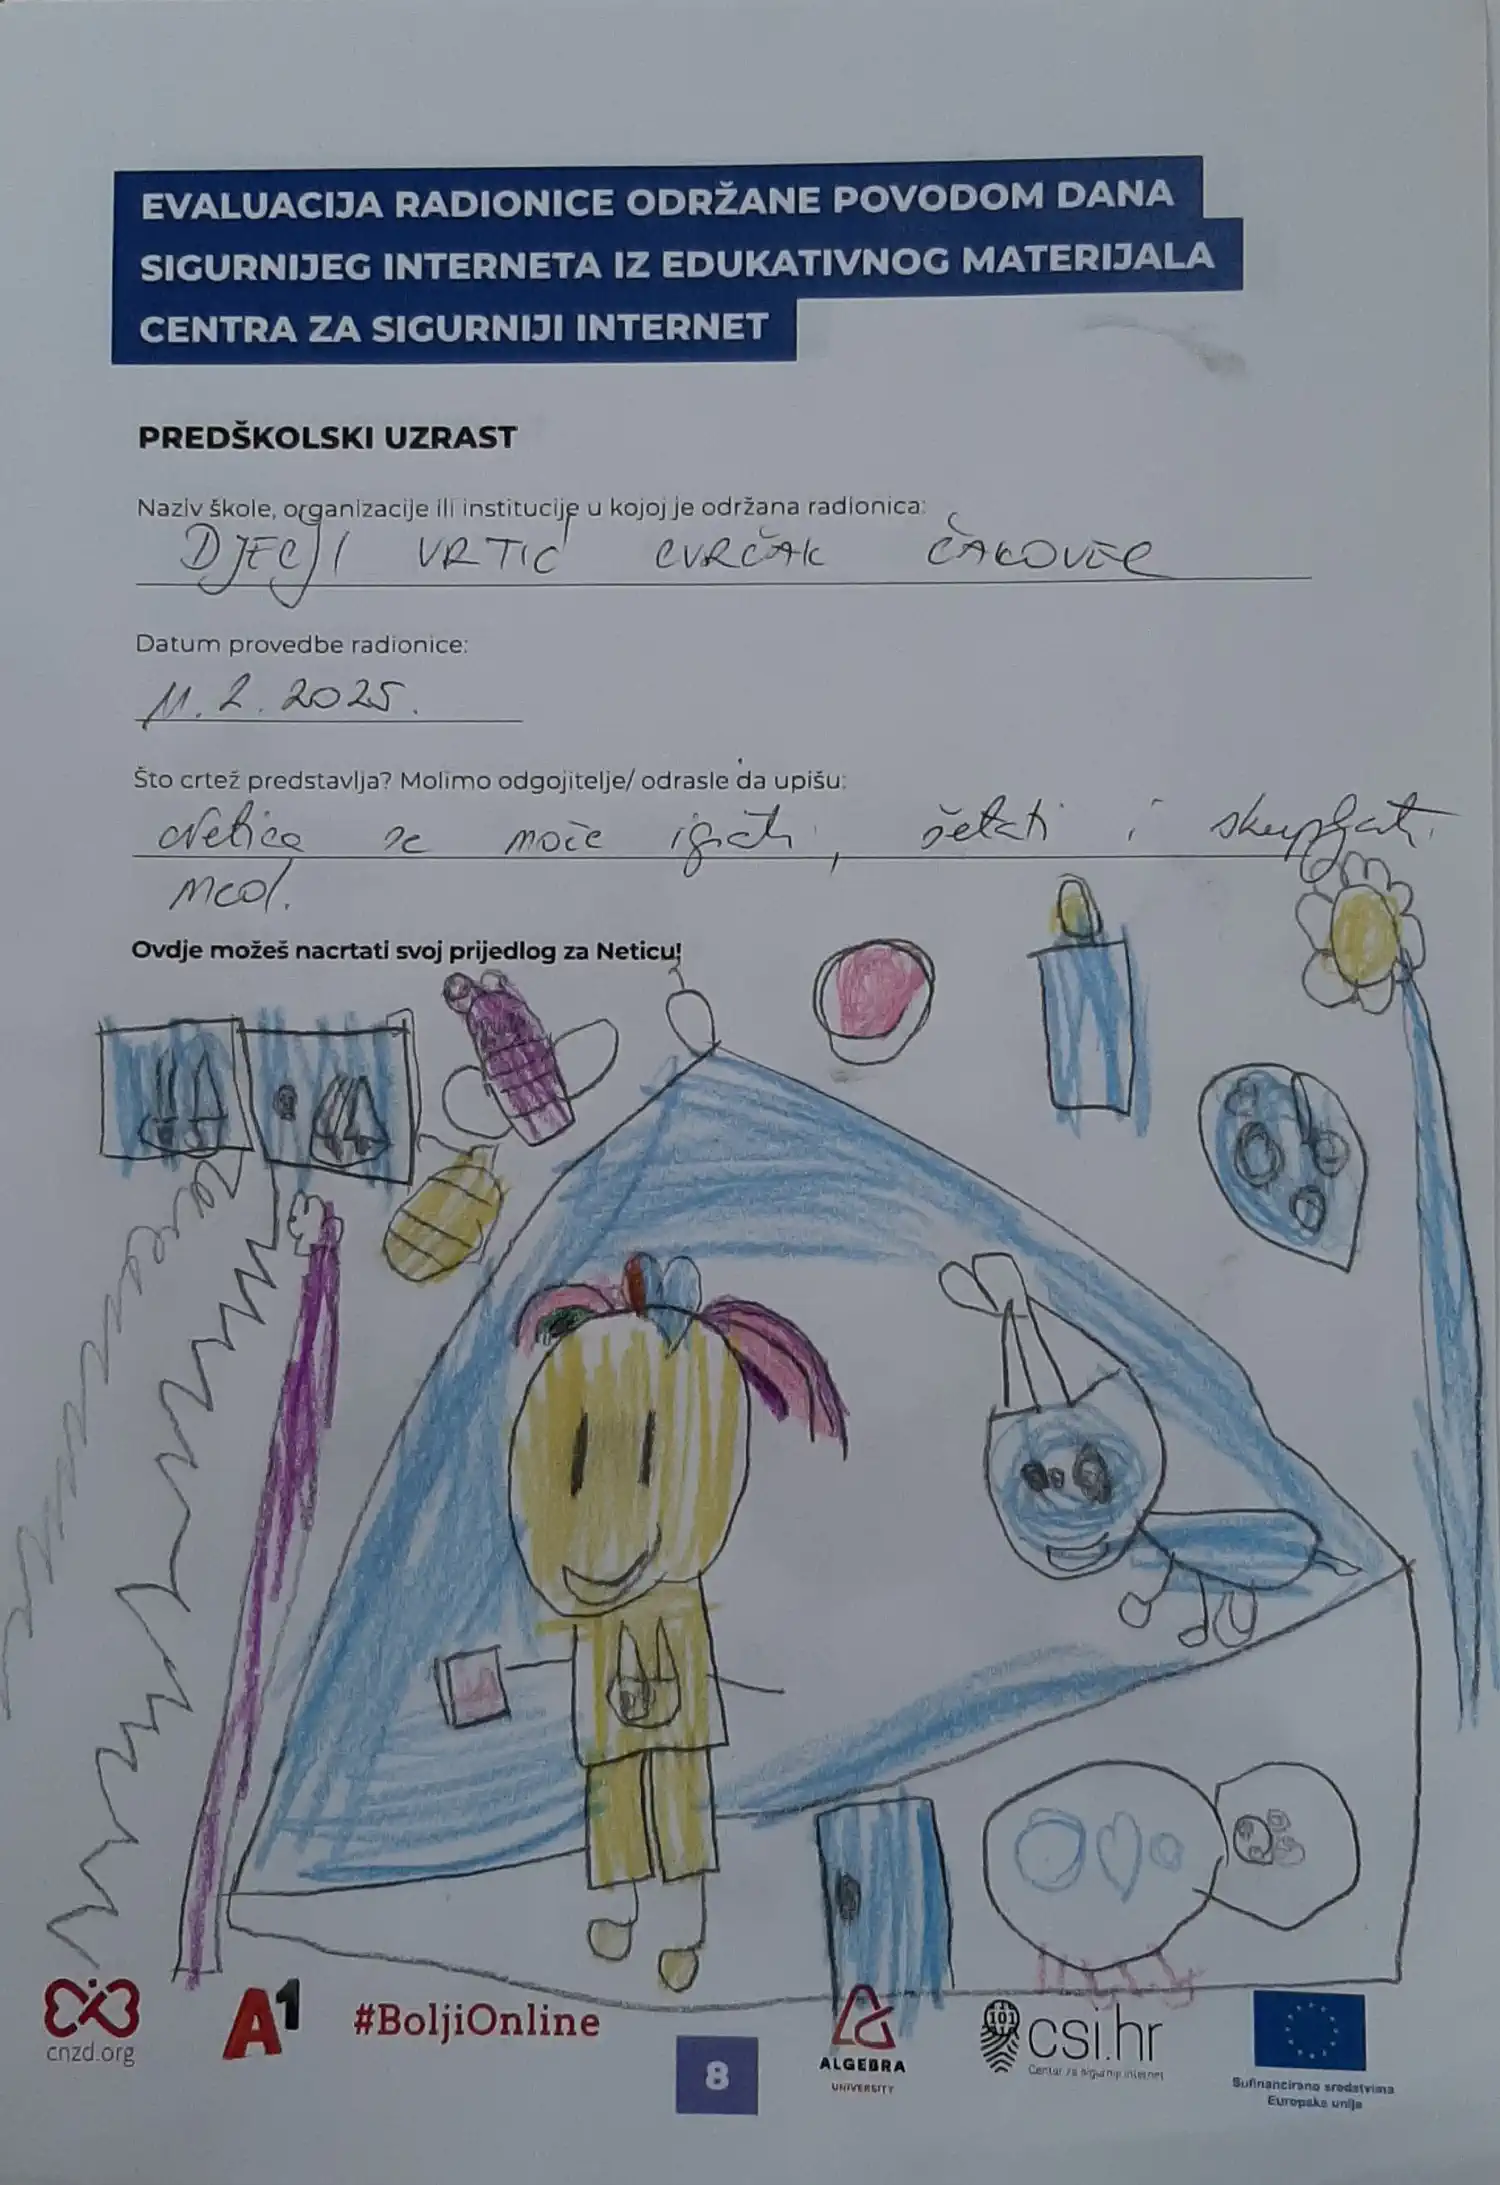 EVALUACIJA RADIONICE ODRŽANE POVODOM DANA
SIGURNIJEG INTERNETA IZ EDUKATIVNOG MATERIJALA
CENTRA ZA SIGURNIJI INTERNET
PREDŠKOLSKI UZRAST
Naziv škole, organizacije ili institucije u kojoj je održana radionica:
DJEČJI VRTIĆ CVRČAK ČAKOVEC
Datum provedbe radionice:
11.2.2025.
Što crtež predstavlja? Molimo odgojitelje/ odrasle da upišu:
Netica se može igrati, šetati i skupljati
med.
Ovdje možeš nacrtati svoj prijedlog za Neticu!
cnzd.org
A1
#BoljiOnline
8
ALGEBRA
UNIVERSITY
101
csi.hr
Centar za sigurniji internet
Sufinancirano sredstvima
Europske unije